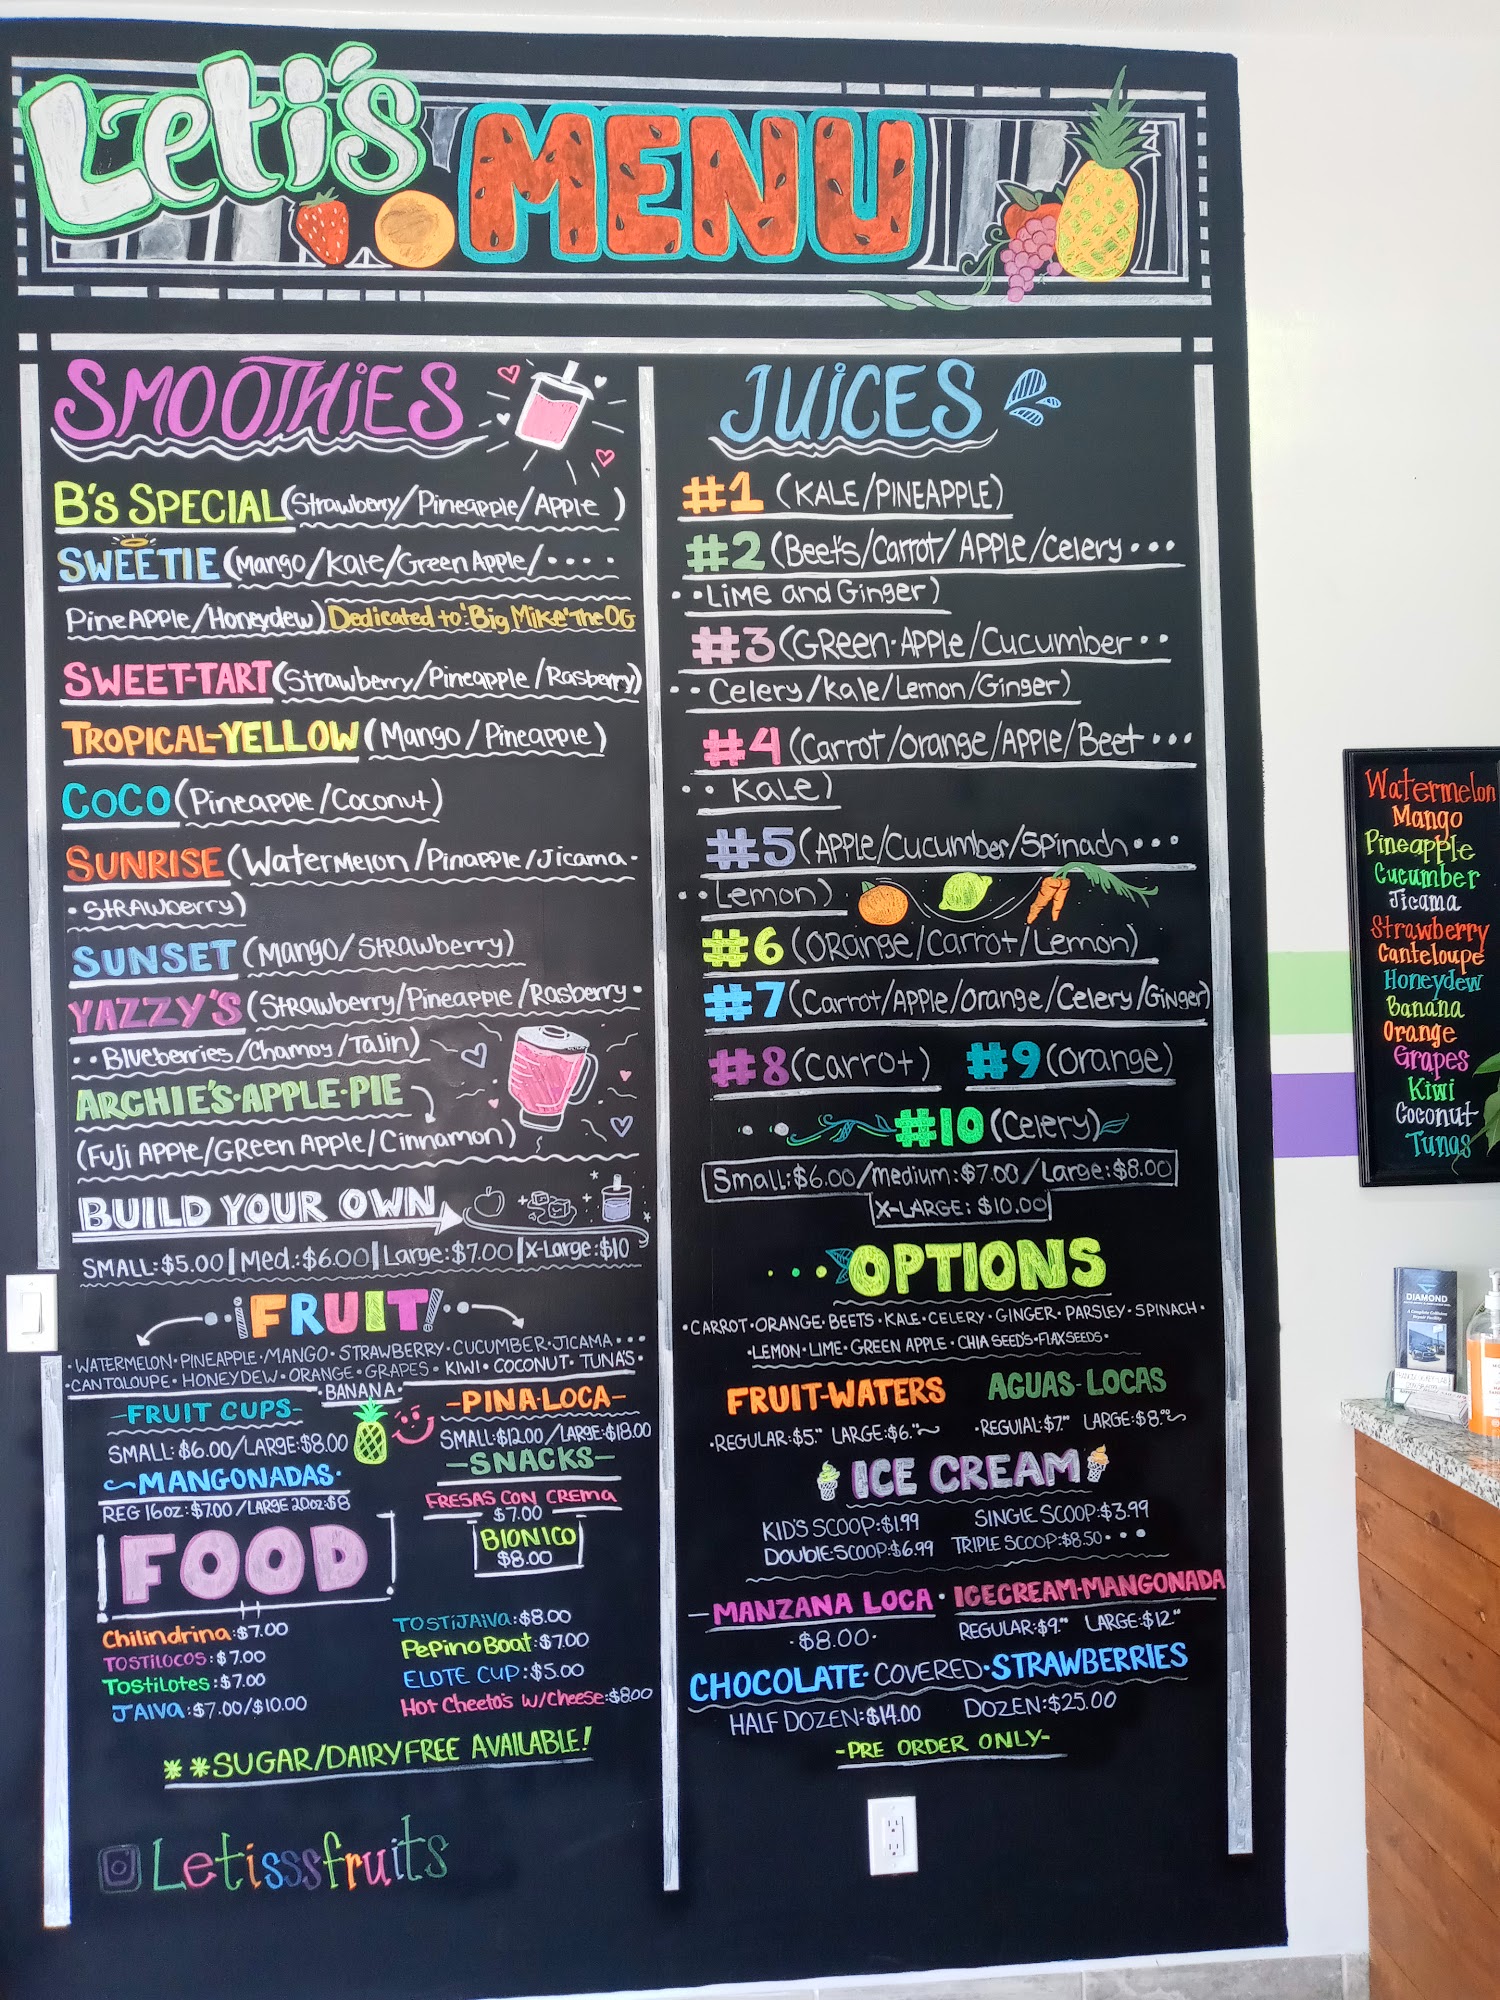 Leti's MENU
SMOOTHIES
B's SPECIAL (Strawberry/Pineapple/Apple )
SWEETIE (Mango/Kale/Green Apple/ • • • •
PineApple/Honeydew) Dedicated to: 'Big Mike' The OG
SWEET-TART (Strawberry/Pineapple/Rasberry)
TROPICAL-YELLOW (Mango/Pineapple)
COCO (Pineapple/Coconut)
SUNRISE (Watermelon/Pinapple/Jicama •
• Strawberry)
SUNSET (Mango/Strawberry)
YAZZY'S (Strawberry/Pineapple/Rasberry •
• • Blueberries/Chamoy/Tajin)
ARCHIE'S•APPLE•PIE
(Fuji Apple/Green Apple/Cinnamon)
BUILD YOUR OWN
SMALL: $5.00 | Med.: $6.00 | Large: $7.00 | X-Large: $10
¡FRUIT!
• WATERMELON • PINEAPPLE • MANGO • STRAWBERRY • CUCUMBER • JICAMA • • •
• CANTOLOUPE • HONEYDEW • ORANGE • GRAPES • KIWI • COCONUT • TUNA'S •
• BANANA •
-FRUIT CUPS-
SMALL: $6.00/LARGE: $8.00
-PINA-LOCA-
SMALL: $12.00/LARGE: $18.00
MANGONADAS•
REG 16oz: $7.00/LARGE 20oz: $8
-SNACKS-
FRESAS CON CREMA
$7.00
BIONICO
$8.00
FOOD
Chilindrina: $7.00
TOSTILOCOS: $7.00
Tostilotes: $7.00
JAIVA: $7.00/$10.00
TOSTIJAIVA: $8.00
Pepino Boat: $7.00
ELOTE CUP: $5.00
Hot Cheeto's w/Cheese: $8.00
**SUGAR/DAIRY FREE AVAILABLE!
Letisssfruits
JUICES
#1 (KALE/PINEAPPLE)
#2 (Beets/Carrot/APPLE/Celery • • •
• • Lime and Ginger)
#3 (Green•APPLE/Cucumber • •
• • Celery/Kale/Lemon/Ginger)
#4 (Carrot/Orange/Apple/Beet • • •
• • Kale)
#5 (APPLE/Cucumber/Spinach • • •
• • Lemon)
#6 (Orange/Carrot/Lemon)
#7 (Carrot/Apple/Orange/Celery/Ginger)
#8 (Carrot) #9 (Orange)
#10 (Celery)
Small: $6.00/medium: $7.00/Large: $8.00
X-LARGE: $10.00
• • • OPTIONS
• CARROT • ORANGE • BEETS • KALE • CELERY • GINGER • PARSLEY • SPINACH •
• LEMON • LIME • GREEN APPLE • CHIA SEEDS • FLAXSEEDS •
FRUIT-WATERS
• REGULAR: $5.00 LARGE: $6.00
AGUAS LOCAS
• REGUIAL: $7.00 LARGE: $8.00
ICE CREAM
KID'S SCOOP: $1.99 SINGLE SCOOP: $3.99
DOUBLE SCOOP: $6.99 TRIPLE SCOOP: $8.50 • • •
-MANZANA LOCA •
• $8.00 •
ICECREAM-MANGONADA
REGULAR: $9.00 LARGE: $12.00
CHOCOLATE• COVERED •STRAWBERRIES
HALF DOZEN: $14.00 DOZEN: $25.00
-PRE ORDER ONLY-
Watermelon
Mango
Pineapple
Cucumber
Jicama
Strawberry
Canteloupe
Honeydew
Banana
Orange
Grapes
Kiwi
Coconut
Tunas
DIAMOND
A Complete Collision
Repair Facility